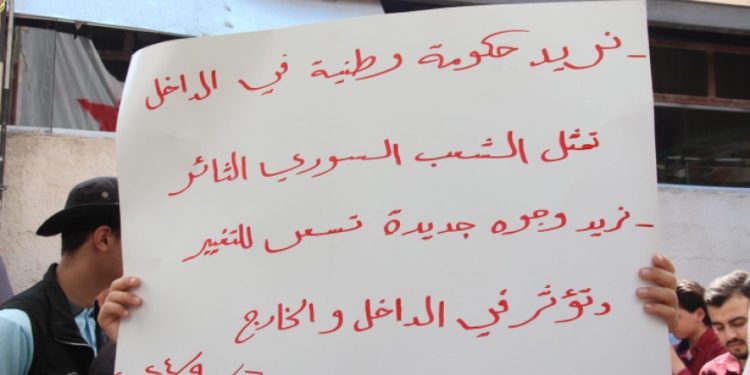 - نريد حكومة وطنية في الداخل
تمثل الشعب السوري الثائر
- نريد وجوه جديدة تسعى للتغيير
وتؤثر في الداخل و الخارج